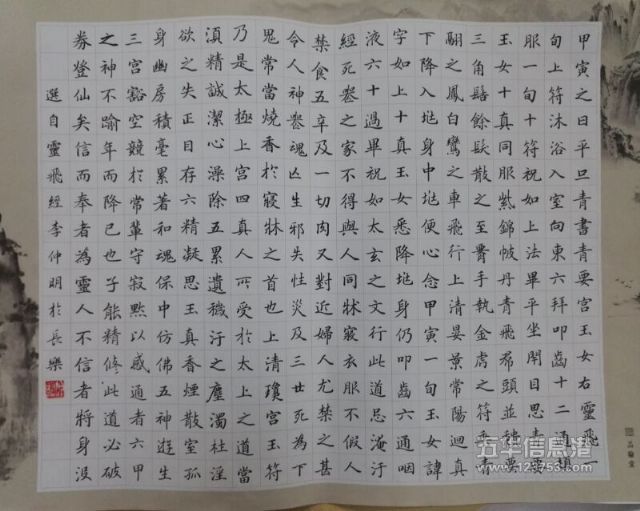 甲寅之日平旦青書青要宮玉女右靈飛一
旬上符沐浴入室向東六拜叩齒十二通頓
服一旬十符祝如上法畢平坐閉目思青要
玉女十真同服紫錦帔丹青飛帬頭並
三角髻餘髮散之至 手執金虎之符乘青
翮之鳳白鸞之車飛行上清晏景常陽迴真
下降入兆身中兆便心念甲寅一旬玉女諱
字如上十真玉女悉降兆身仍叩齒六通咽
液六十過畢祝如太玄之文行此道忌淹汙
經死喪之家不得與人同牀寢衣服不假人
禁食五辛及一切肉又對近婦人尤禁之甚
令人神喪魂亡生邪失性災及三世死為下
鬼常當燒香於寢牀之首也上清瓊宮玉符
乃是太極上宮四真人所受於太上之道當
須精誠潔心澡除五累遺穢汙之塵濁杜淫
欲之失正目存六精凝思玉真香煙散室孤
身幽房積毫累著和魂保中仿佛五神遊生
三宮豁空競於常輩守寂默以感通者六甲
之神不踰年而降已也子能精修此道必破
券登仙矣信而奉者為靈人不信者將身沒
選自靈飛經李仲明於長樂
五华信息港
www.122753.com